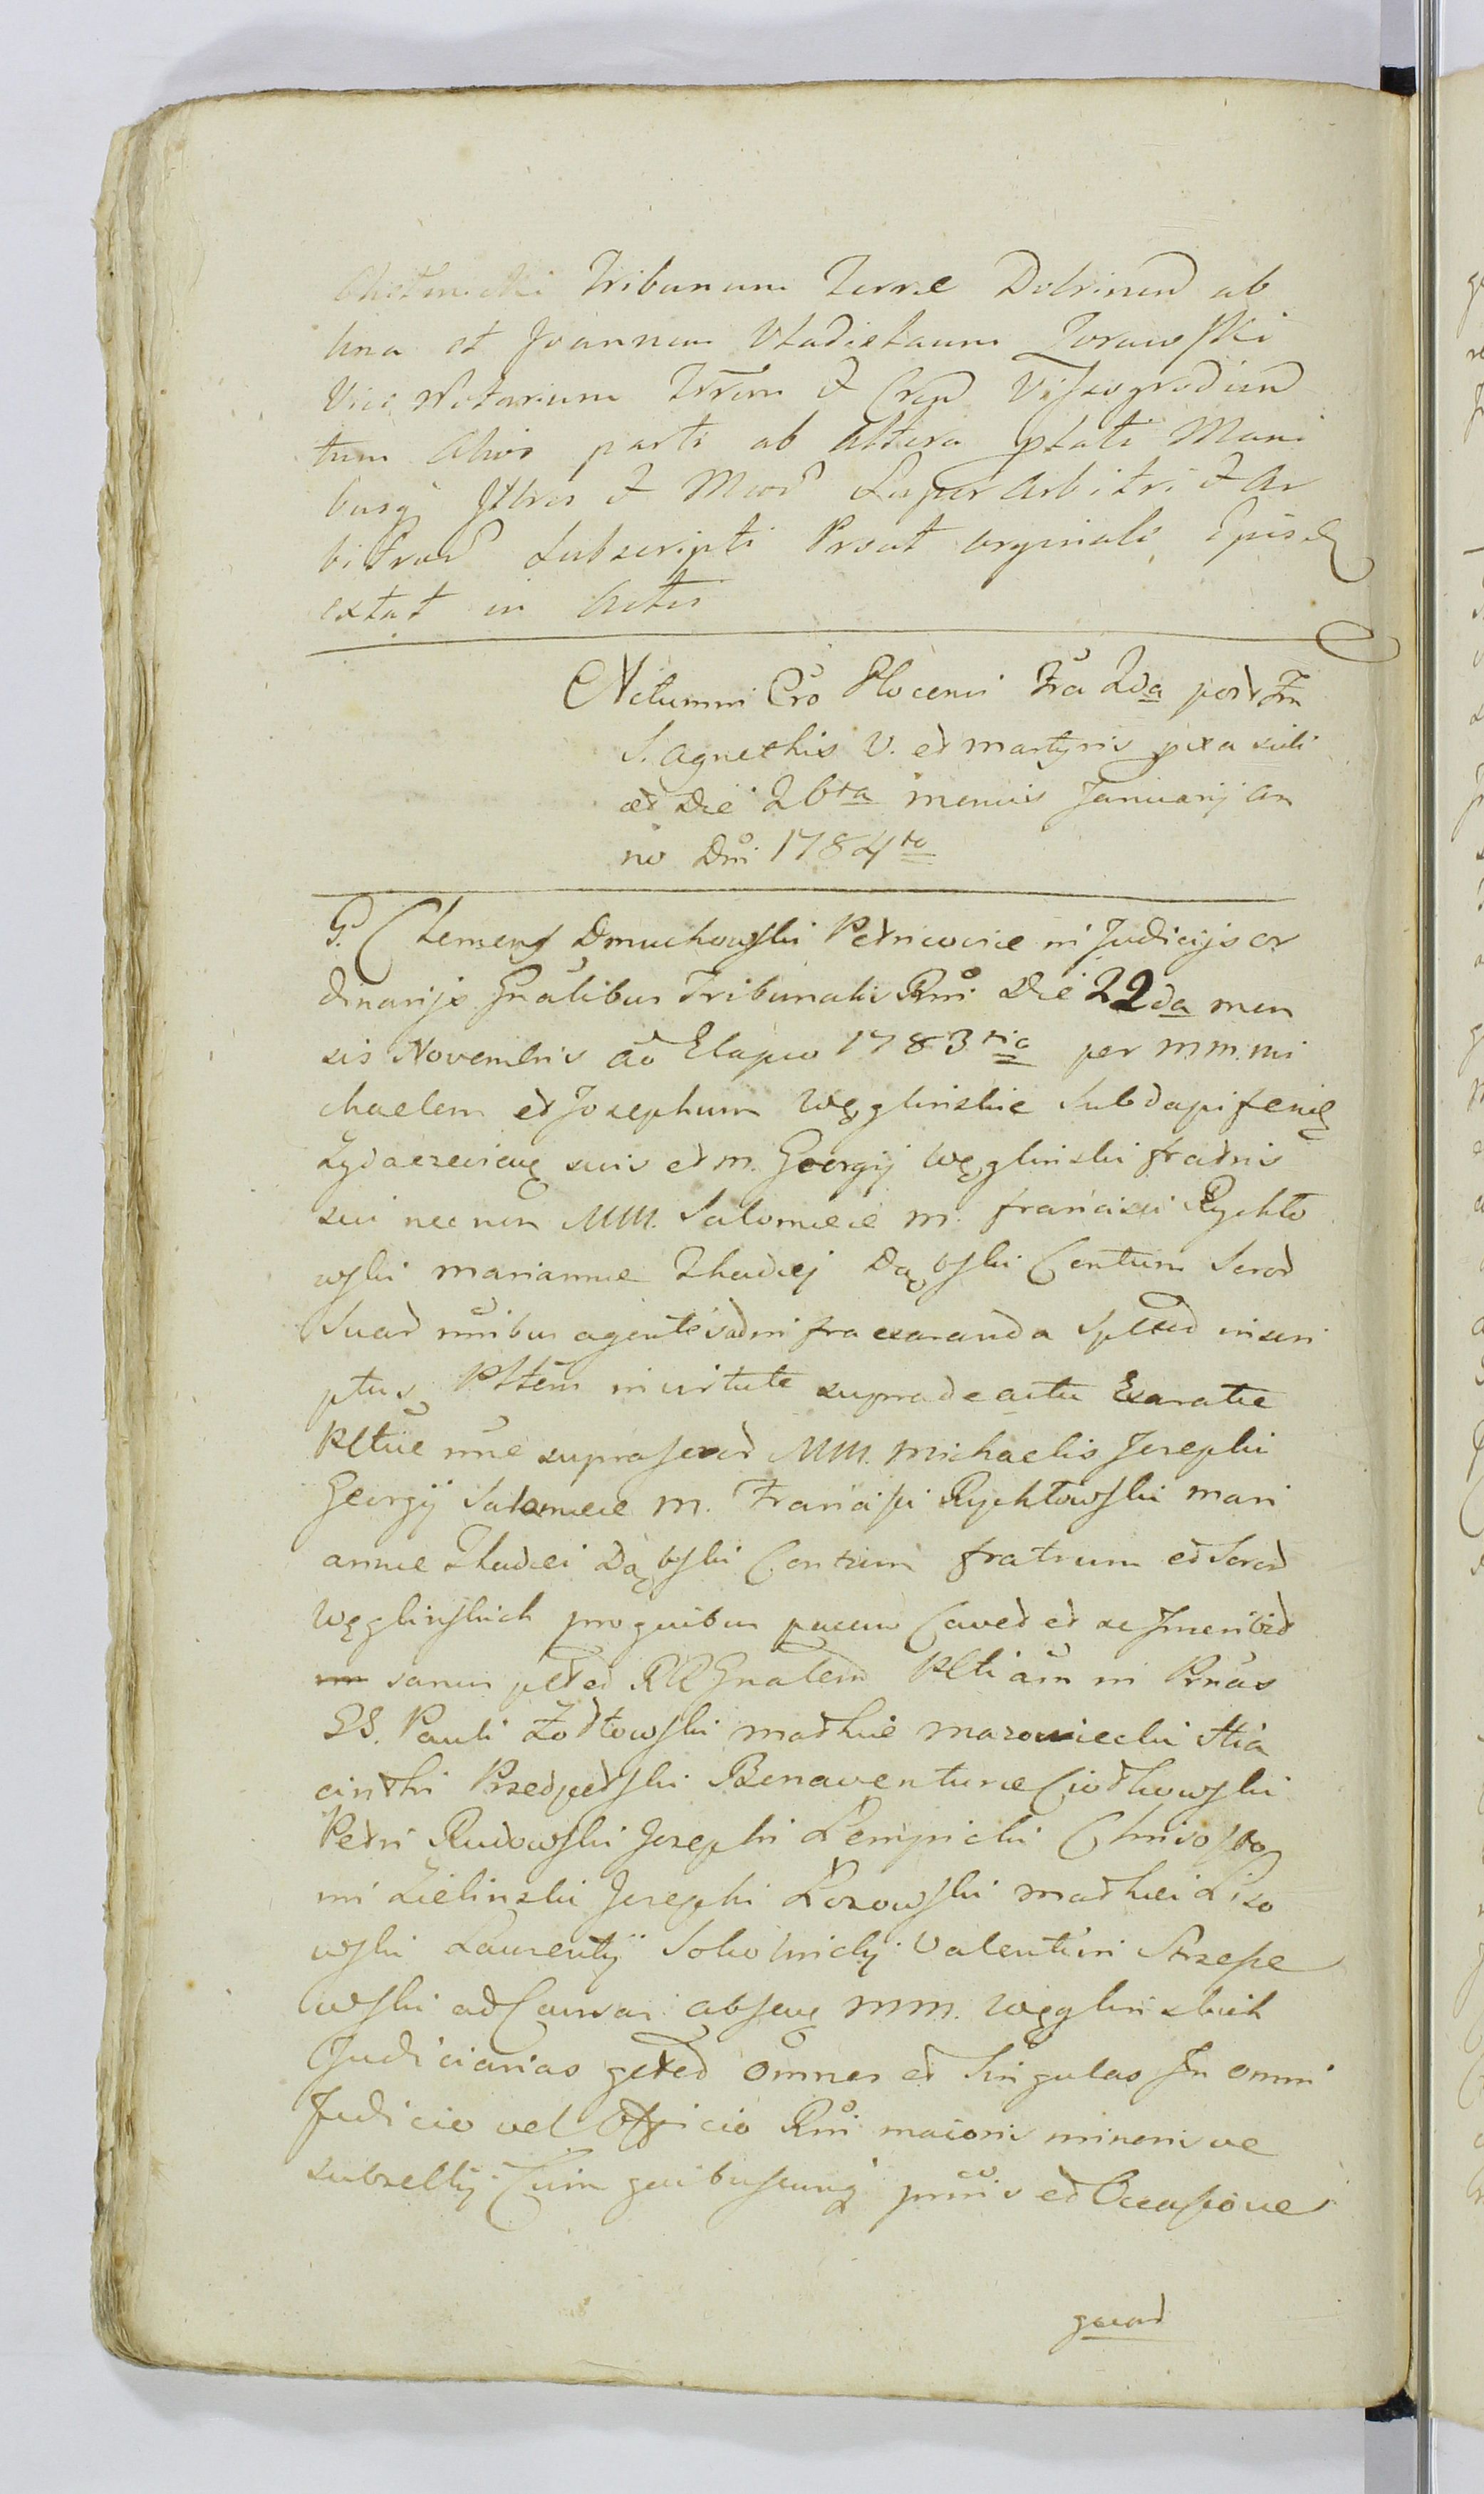 Tribunum Terræ Dobrinen ab
una et Joannem Vladislaum Zorawski
Vice Notarium Trrem et Cren Vissogrodien
tum alios parti ab altera ptati Mani
busq; et Arbitri et Ar
bitror Subscripti Prout orginale Episcq
extat in Actis
Actum in Cro Plocensi Fra 2da post Fm
S. Agnethis V. et martyris pxa sciti
cet Die 26ta mensis Januarij an
no Dni 1784to
G. Clemens Dmuchowski Petricovice in Judicijs or
dinarijs Gnalibus Tribunalis Rni Die 22da men
sis Novembris ao Elapso 1783tio per MM. mi
chaelem et Josephum Węglinskie Subdapiferid
Zydaczevienq suis et m. Georgij Węglinski fratris
sui nec non MM. Salomeæ m. francisci Rychło
wski mariannæ Thadæi Dąbski Contum Soror
Suar nnibus agentes ad infra exaranda Spltr inscri
ptus Pltem in virtute supra de actu Exaratæ
Pltæ nne supraforcr MM. Michaelis Josephi
Georgij Salomeæ m. Francisci Rychłowski mari
annæ Thadæi Dąbski Contum fratrum et Soror
Węglinskich pro quibus cavet et se Inscribit
sanis RRGnalem Pltiam in Prnas
GG. Pauli Zołtowski mathiæ mazowiecki Hia
cinthi Przedpełski Bonaventuræ Ciothowski
Petri Rudowski Josephi Lempicki Chrisosto
mi Zielinski Josephi Lozowski mathæi Liso
wski Laurentij Sokolnicky Valentini Strzeszo
wski ad Causas absenq MM. Węglinskich
Judiciarias gextd omnes et Singulas In omni
Judicio vel Officio Rni maioris minorisve
subsellij Cum quibuscunq prnis et Occasione
quar